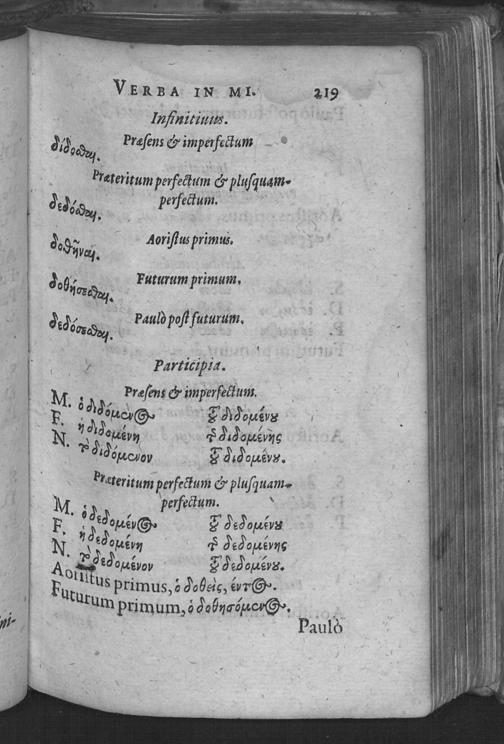 VERBA IN MI. 219
Infinitiuus.
Præsens & imperfectum
δίδοσθαι.
Præteritum perfectum & plusquam-
perfectum.
δεδόσθαι.
Aoristus primus.
δοθῆναι.
Futurum primum.
δοθήσεσθαι.
Paulò post futurum.
δεδόσεσθαι.
Participia.
Præsens & imperfectum.
M. ὁ διδόμενος τοῦ διδομένου
F. ἡ διδομένη τῆς διδομένης
N. τὸ διδόμενον τοῦ διδομένου.
Præteritum perfectum & plusquam-
perfectum.
M. ὁ δεδομένος τοῦ δεδομένου
F. ἡ δεδομένη τῆς δεδομένης
N. τὸ δεδομένον τοῦ δεδομένου.
Aoristus primus, ὁ δοθεὶς, έντος.
Futurum primum, ὁ δοθησόμενος.
Paulò
ni-